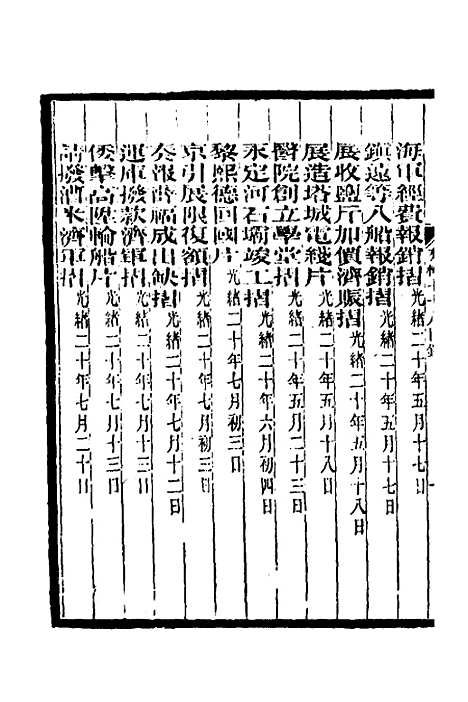 海軍經費報銷摺光緒二十年五月十七日
鎮遠等八船報銷摺光緒二十年五月十七日
展收鹽斤加價濟賑摺光緒二十年五月十八日
展造塔城電綫片光緒二十年五月十八日
醫院創立學堂摺光緒二十年五月二十三日
永定河石壩竣工摺光緒二十年六月初四日
黎熙德回國片光緒二十年七月初三日
京引展限復額摺光緒二十年七月初三日
奏報薛福成出缺摺光緒二十年七月十二日
運庫撥款濟軍摺光緒二十年七月十三日
倭擊高陞輪船片光緒二十年七月十三日
請撥漕米濟軍摺光緒二十年七月二十日